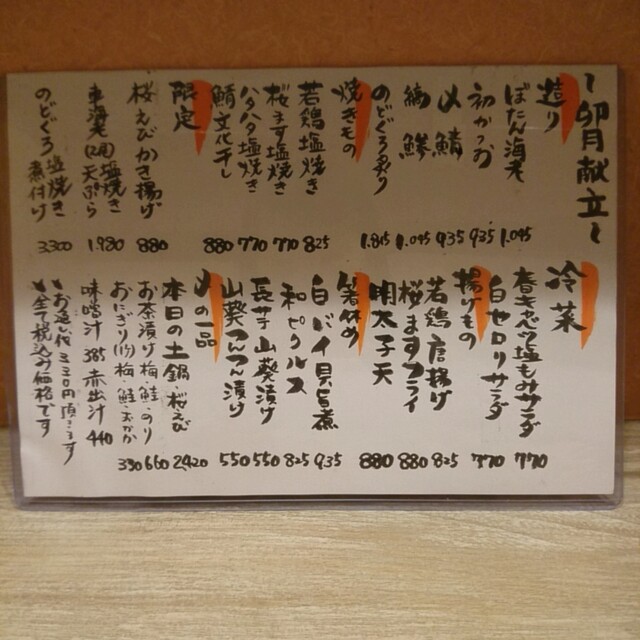 〜卯月献立〜
造り
ぼたん海老 1.045
初かつお 935
〆鯖 935
縞鯵 1.045
のどぐろ炙り 1.815
焼きもの
若鶏塩焼き 825
桜ます塩焼き 770
ハタハタ塩焼き 770
鯖文化干し 880
限定
桜えびかき揚げ 880
車海老(2尾)塩焼き・天ぷら 1.980
のどぐろ塩焼き・煮付け 3.300
冷菜
春キャベツ塩もみサラダ 770
白セロリサラダ 770
揚げもの
若鶏唐揚げ 825
桜ますフライ 880
明太子天 880
箸休め
白バイ貝旨煮 935
和ピクルス 825
長芋山葵漬け 550
山葵つんつん漬け 550
〆の一品
本日の土鍋・桜えび 2.420
お茶漬け 梅・鮭・のり 660
おにぎり(1ケ)梅・鮭・おかか 330
味噌汁 385 赤出汁 440
お通し代330円頂きます
全て税込み価格です